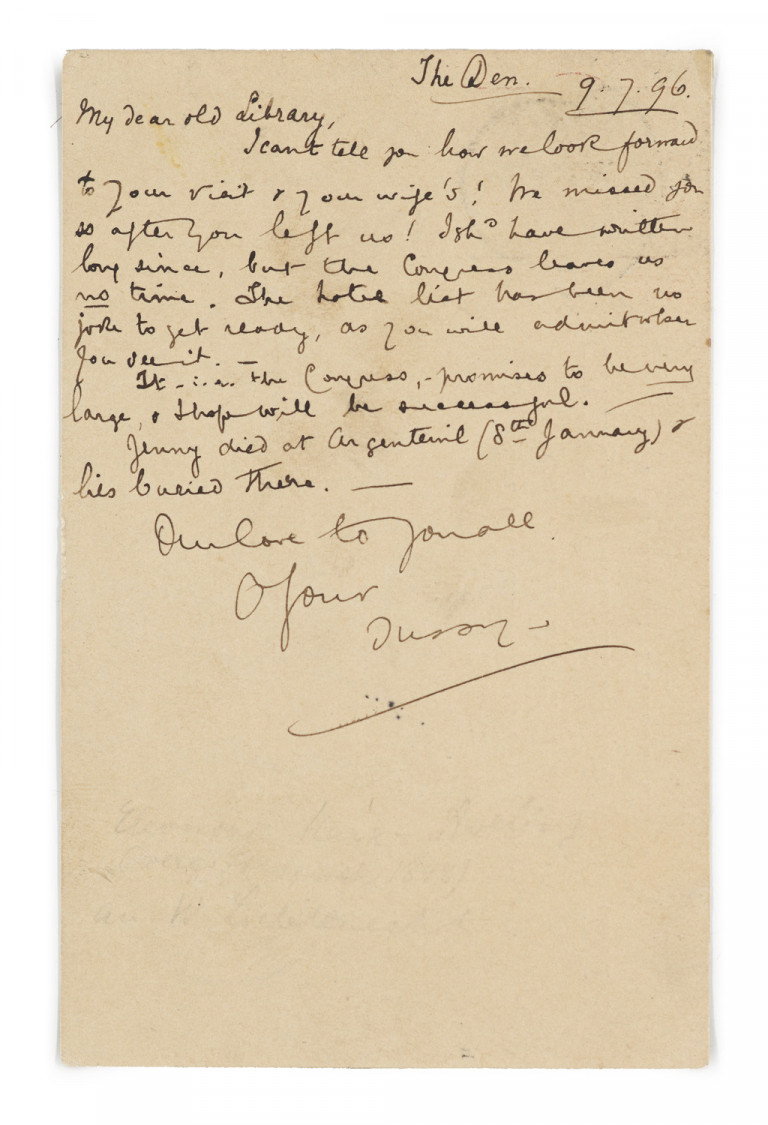 The Den. 9.7.96.
My dear old Library,
I can't tell you how we look forward
to your visit & your wife's! We missed you
so after you left us! I shd have written
long since, but the Congress leaves us
no time. The hotel list has been no
joke to get ready, as you will admit when
you see it. —
It - i.e. the Congress, - promises to be very
large, & I hope will be successful. —
Jenny died at Argenteuil (8th January) &
lies buried there. —
Our love to you all.
Your
Tussy —